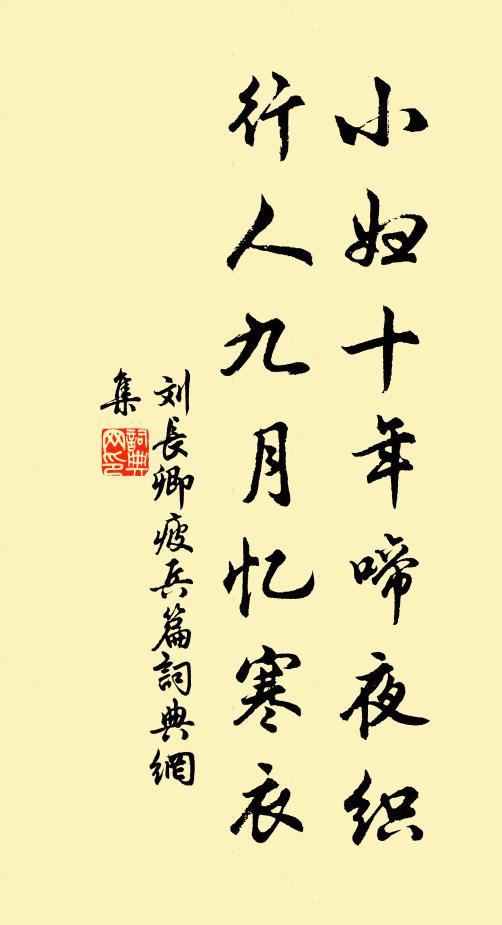 小妇十年啼夜织
行人九月忆寒衣
刘長卿疲兵篇詞典網
集
詞典
网印